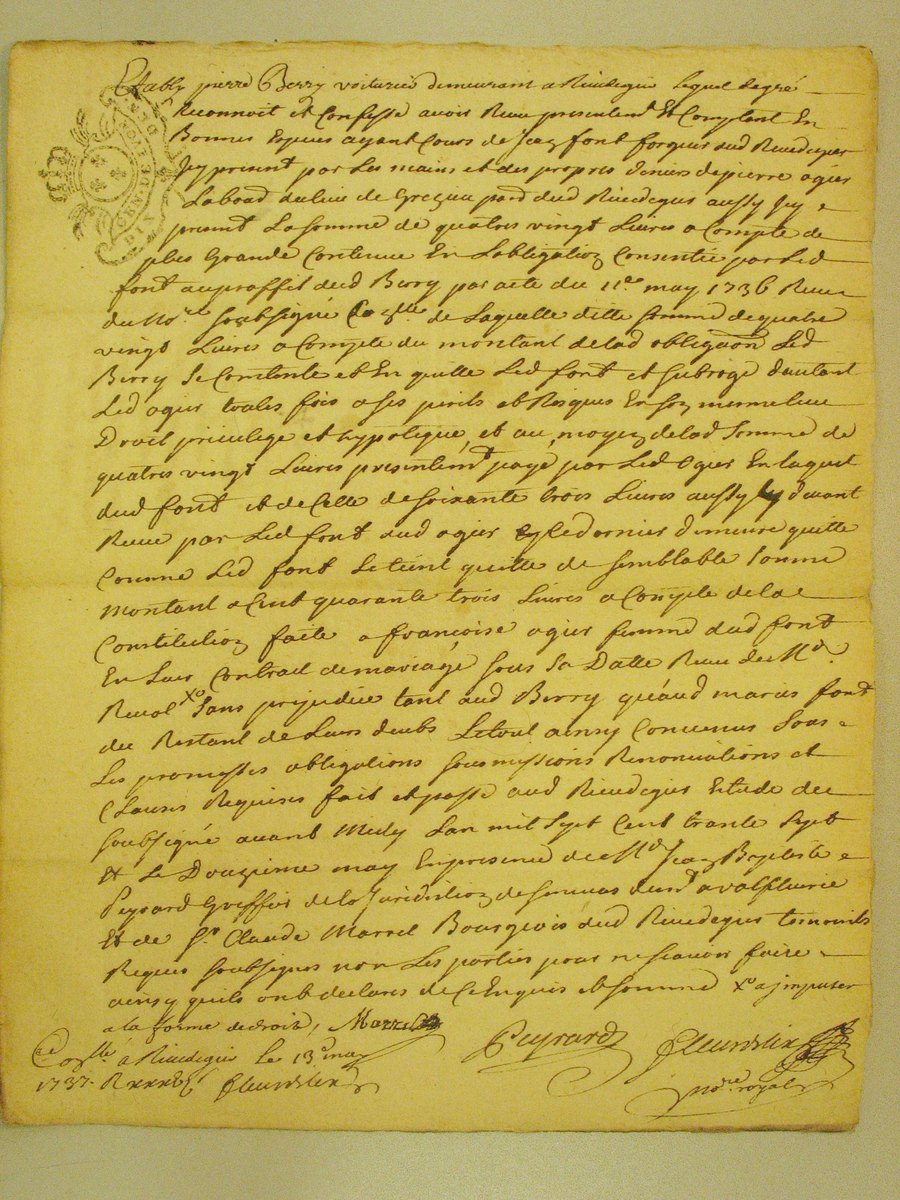 Etably pierre Berry voiturier demeurant a Rivedegier Lequel de gré
Reconnoit et Confesse avoir Receu presentemt Et Comptant En
Bonnes Especes ayant Cours de Jean font forgeur dud Rivedegier
Jcy present par Les mains et des propres deniers de pierre ogier
Laboad du lieu de Grezieu pard dud Rivedegier aussy Jcy
present La somme de quatres vingt Livres a Compte de
plus Grande Contenue En Lobligation Consentie par Led
font au proffit dud Berry par acte du 11e may 1736 Receu
du Nore soubsigné de Laquelle ditte somme de quatre
vingt Livres a Compte du montant de lad obligaon Led
Berry Se Contente et En quitte Led font et subroge d'autant
Led ogier toutes fois a ses perils et Risques En son mesme lieu
Droit privilege et hypoteque, et au moyen de lad somme de
quatres vingt Livres presentemt payé par Led Ogier En laquit
dud font et de Celle de soixante trois Livres aussy Cy devant
Receue par Led font dud ogier Ce dernier demeure quitte
Comme Led font Le tient quitte de semblable somme
montant a Cent quarante trois Livres a Compte de la
Constitution faite a francoise ogier femme dud font
En Leur Contrait de mariage sous sa Datte Receu de Me
Xo Sans prejudice tant aud Berry qu'aud maries font
du Restant de Leurs deubs Le tout ainsy Convenus Sous
Les promesses obligations soubmissions Renonciations et
Clauses Requises fait et passé aud Rivedegier Etude du
soubsigné avant Midy Lan mil sept Cent trante sept
Et Le Douzieme may En presence de Me Jean Baptiste
Peyrard Greffier de la Juridiction de demt a valfleurie
Et de Sr Claude Marrel Bourgeois dud Rivedegier temoins
Requis soubsignes non Les parties pour ne scavoir faire
ainsy quils ont declarés de Ce Enquis et sommé Xo a jmputer
a la forme de droit, Marrel
Peyrard
nore royal
Collé à Rivedegier le 13e may
1737
DIX
GEN. DE LYON